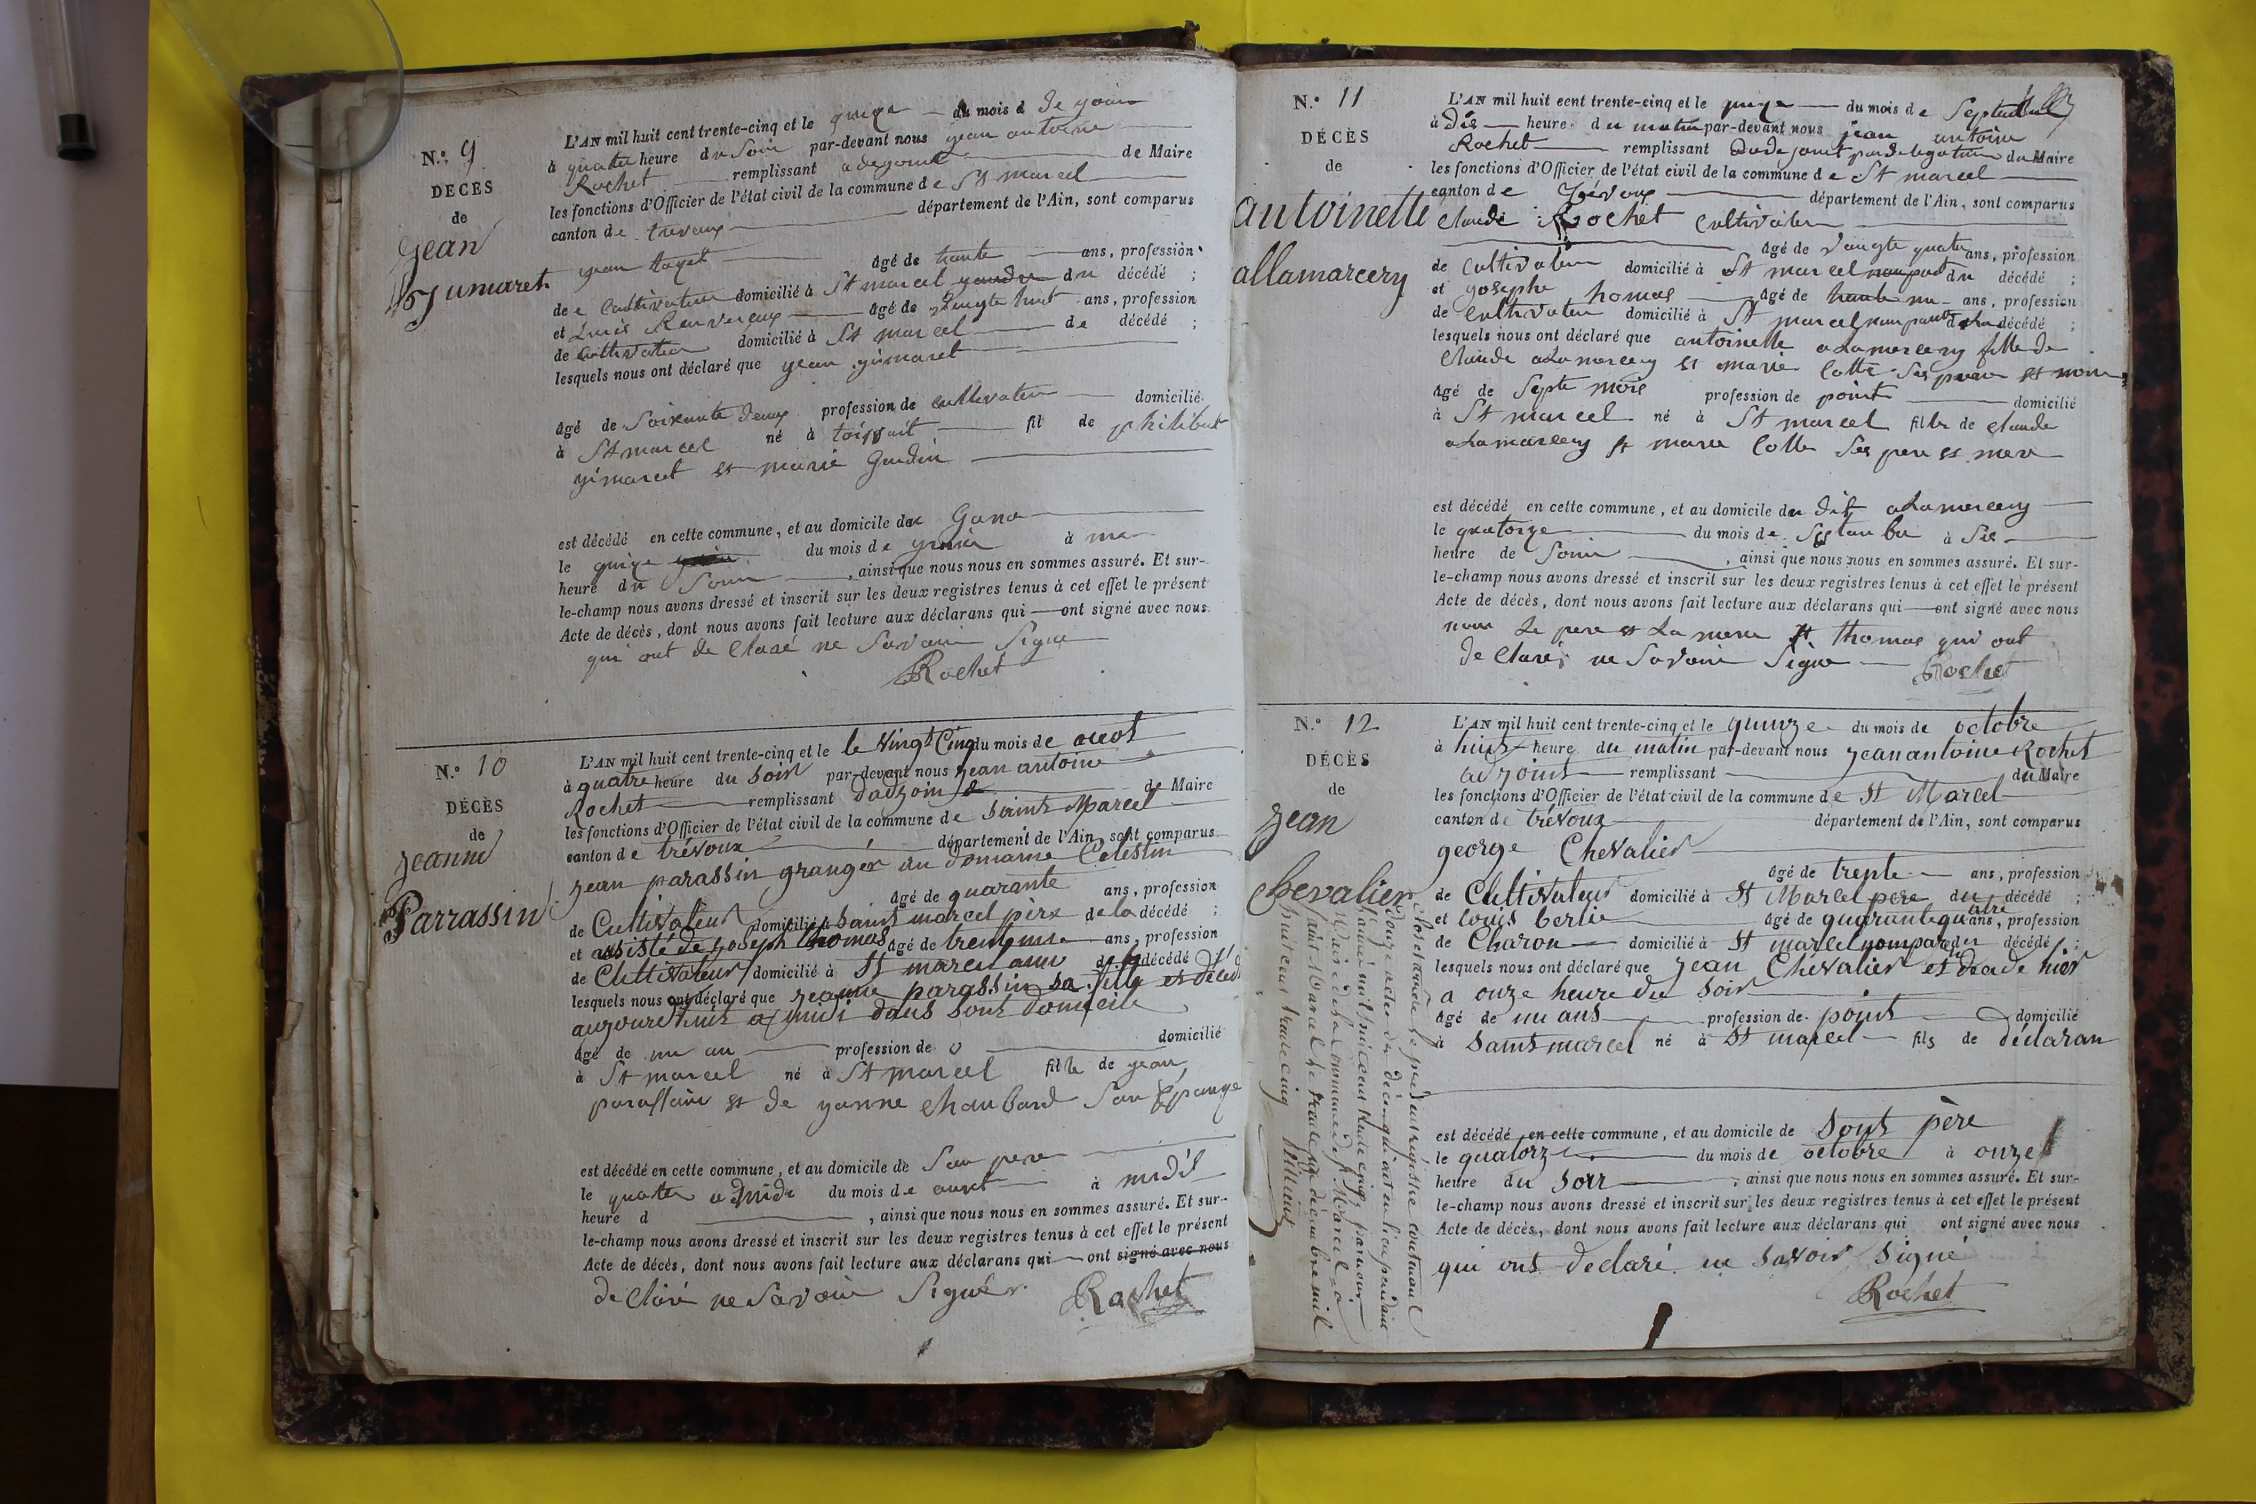 N.° 9
DÉCÈS
de
jean
jumaret
L'AN mil huit cent trente-cinq et le quize du mois d de juin
à quatre heure du Soir par-devant nous jean antoine
Rochet remplissant adejoint de Maire
les fonctions d'Officier de l'état civil de la commune de St marcel
canton de trévoux département de l'Ain, sont comparus
jean
âgé de trante ans, profession
de Cultivateur domicilié à St marcel du décédé ;
et Louis âgé de vingte huit ans, profession
de Cultivateur domicilié à St marcel de décédé ;
lesquels nous ont déclaré que jean jimaret
âgé de Soixante deux profession de cultivateur domicilié
à St marcel né à fil de philibert
jimaret et marie
est décédé en cette commune, et au domicile de
le quize du mois de juin à
heure du Soir, ainsi que nous nous en sommes assuré. Et sur-
le-champ nous avons dressé et inscrit sur les deux registres tenus à cet effet le présent
Acte de décès, dont nous avons fait lecture aux déclarans qui ont signé avec nous
qui ont de claré ne Savoir Signe
Rochet
N.° 10
DÉCÈS
de
jeanne
Parrassin
L'AN mil huit cent trente-cinq et le le vingt Cinq du mois de aout
à quatre heure du soir par-devant nous jean antoine
Rochet remplissant d'adjoint de Maire
les fonctions d'Officier de l'état civil de la commune de Saint Marcel
canton de trévoux département de l'Ain, sont comparus
jean parassin granger du domaine Celestin
âgé de quarante ans, profession
de Cultivateur domicilié à Saint marcel père de la décédé ;
et assisté de joseph thomas âgé de trent une ans, profession
de Cultivateur domicilié à St marcel ami de la décédé
lesquels nous ont déclaré que jeanne parassin sa fille et décédé
aujourd'huit a midi dans sont domicile
âgé de un an profession de o domicilié
à St marcel né à St marcel fille de jean
parassin et de janne Chanbard Son Epouze
est décédé en cette commune, et au domicile de Son pere
le du mois de à midi
heure d , ainsi que nous nous en sommes assuré. Et sur-
le-champ nous avons dressé et inscrit sur les deux registres tenus à cet effet le présent
Acte de décès, dont nous avons fait lecture aux déclarans qui ont signé avec nous
de claré ne Savoir Signér
Rochet
N.° 11
DÉCÈS
de
antoinette
allamarcery
L'AN mil huit cent trente-cinq et le quize du mois de Septembre
à Dis heure du matin par-devant nous jean antoine
Rochet remplissant du Maire
les fonctions d'Officier de l'état civil de la commune de St marcel
canton de Trévoux département de l'Ain, sont comparus
Claude Rochet Cultivateur
âgé de vangte quatre ans, profession
de Cultivateur domicilié à St marcel nonparant du décédé ;
et josephe thomas âgé de trante un ans, profession
de Cultivateur domicilié à St marcel nonparant de la décédé ;
lesquels nous ont déclaré que antoinette alamercery fille de
Claude alamercery et marie Cotte Ses pere et mere
âgé de Septe mois profession de point domicilié
à St marcel né à St marcel fille de Claude
alamarcery et marie Cotte Ses pere et mere
est décédé en cette commune, et au domicile du dit alamercery
le quatorze du mois de Septanbre à Sis
heure de Soir, ainsi que nous nous en sommes assuré. Et sur-
le-champ nous avons dressé et inscrit sur les deux registres tenus à cet effet le présent
Acte de décès, dont nous avons fait lecture aux déclarans qui ont signé avec nous
non Le pere et La mere et thomas qui ont
de Clarés ne Savoir Signe Rochet
N.° 12
DÉCÈS
de
jean
Chevalier
L'AN mil huit cent trente-cinq et le quinze du mois de octobre
à huit heure du matin par-devant nous jean antoine Rochet
adjoint remplissant du Maire
les fonctions d'Officier de l'état civil de la commune de St Marcel
canton de trévoux département de l'Ain, sont comparus
george Chevalier
âgé de trente ans, profession
de Cultivateur domicilié à St Marcel pere du décédé ;
et louis berlie âgé de quarante quatre ans, profession
de Charon domicilié à St marcel nonparan du décédé ;
lesquels nous ont déclaré que jean Chevalier et décédé hier
a onze heure du Soir
âgé de un ans profession de point domicilié
à Saint marcel né à St marcel fils de déclaran
est décédé en cette commune, et au domicile de sont père
le quatorz du mois de octobre à onze
heure du soir, ainsi que nous nous en sommes assuré. Et sur-
le-champ nous avons dressé et inscrit sur les deux registres tenus à cet effet le présent
Acte de décès, dont nous avons fait lecture aux déclarans qui ont signé avec nous
qui ont declaré ne savoir signé
Rochet
Clos et arreté le présent régistre contenant
douze actes de décès qui ont eu lieu pendant
l'année mil huit cent trente cinq par nous
Maire de la commune de St Marcel à
Saint Marcel le trente un décembre mil
huit cent trente cinq